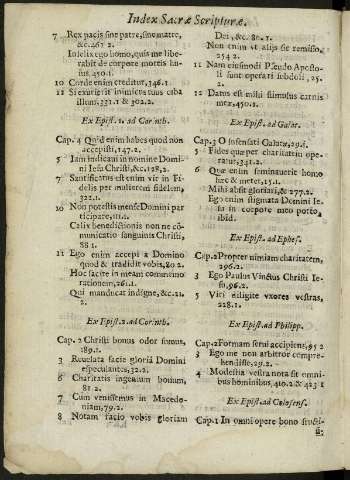 Index Sacræ Scripturæ.
7 Rex pacis sine patre, sine matre,
&c. 467 2.
Infelix ego homo, quis me liberabit
rabit de corpore mortis huius. 450.1.
10 Corde enim creditur, 346.1.
12 Si exurierit inimicus tuus ciba
illum. 331.1 & 302.2.
Ex Epist. 1. ad Corinth.
Cap. 4 Quid enim habes quod non
accepisti, 147.2.
5 Iam indicani in nomine Domini
ni Iesu Christi, &c. 128.2.
7 Sanctificatus est enim vir infidelis
delis per mulierem fidelem,
322.1.
10 Non potestis mensæ Domini participare,
ticipare, 111.1.
Calix benedictionis non ne communicatio
municatio sanguinis Christi,
88.1.
11 Ego enim accepi a Domino
quod & tradidit vobis, 80.2.
Hoc facite in meam commemorationem,
rationem, 261.1.
Qui manducat indigne, &c. 21.
2.
Ex Epist. 2. ad Corinth.
Cap. 2 Christi bonus odor sumus,
189.1.
3 Reuelata facie gloria Domini
especulantes, 32.2.
6 Charitatis ingenium bonum,
81.2.
7 Cum venissemus in Macedoniam,
niam, 79.2.
8 Notam facio vobis gloriam
Dei, &c. 80.1.
Non enim vt alijs sit remissio,
254 2.
11 Nam eiusmodi Pseudo Apostoli
li sunt operarii subdoli, 25.
2.
12 Datus est mihi stimulus carnis
meæ, 450.2.
Ex Epist. ad Galat.
Cap. 3 O Insensati Galatæ, 29.1.
5 Fides quæ per charitatem operatur,
ratur, 341.2.
6 Quæ enim seminauerit homo
hæc & metet, 15.1.
Mihi absit gloriari, & 277.2.
Ego enim stigmata Domini Iesu
su in corpore meo porto,
ibid.
Ex Epist. ad Ephes.
Cap. 2 Propter nimiam charitatem,
296.2.
3 Ego Paulus Vinctus Christi Iesu,
su, 96.2.
5 Viri diligite vxores vestras,
228.1.
Ex Epist. ad Philipp.
Cap. 2 Formam serui accipiens, 95 2
3 Ego me non arbitror comprehendisse,
hendisse, 29.2.
4 Modestia vestra nota sit omnibus
bus hominibus, 410.2 & 423 1
Ex Epist. ad Colosens.
Cap. 1 In omni opere bono fructi-